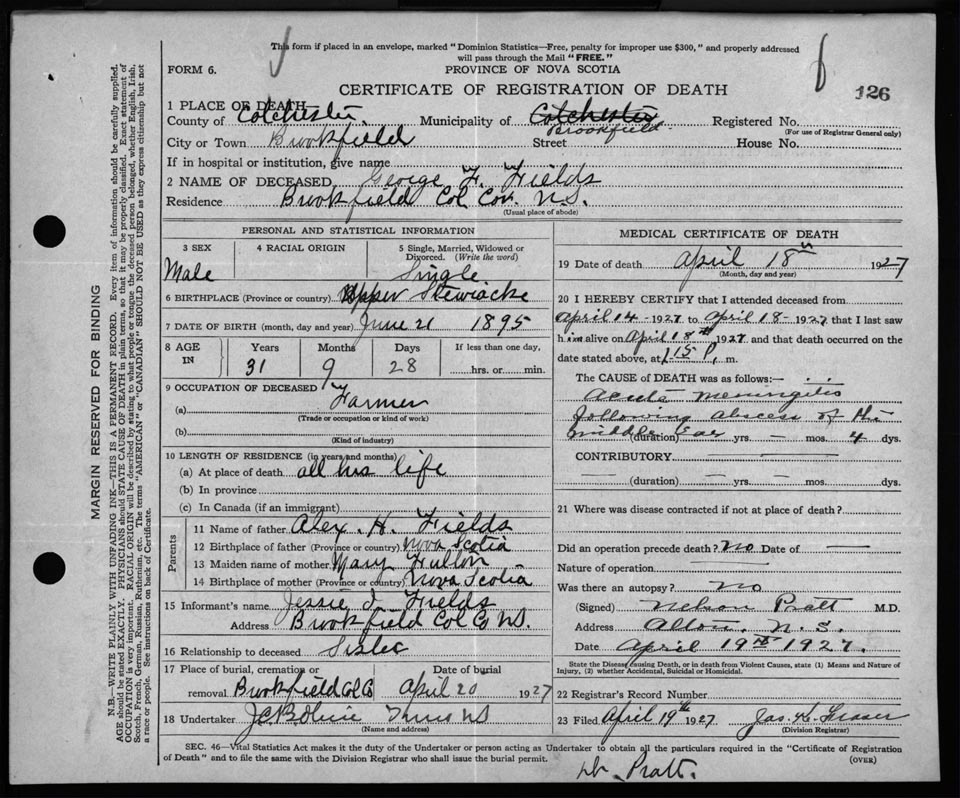 This form if placed in an envelope, marked "Dominion Statistics—Free, penalty for improper use $300," and properly addressed
will pass through the Mail "FREE."
FORM 6.
PROVINCE OF NOVA SCOTIA
CERTIFICATE OF REGISTRATION OF DEATH
126
1 PLACE OF DEATH
County of Colchester. Municipality of Colchester Brookfield Registered No.
(For use of Registrar General only)
City or Town Brookfield Street House No.
If in hospital or institution, give name
2 NAME OF DECEASED George F. Fields
Residence Brookfield Col. Co. N.S.
(Usual place of abode)
PERSONAL AND STATISTICAL INFORMATION
3 SEX 4 RACIAL ORIGIN 5 Single, Married, Widowed or Divorced. (Write the word)
Male Single
6 BIRTHPLACE (Province or country) Upper Stewiacke
7 DATE OF BIRTH (month, day and year) June 21 1895
8 AGE IN Years Months Days If less than one day,
31 9 28 hrs. or min.
9 OCCUPATION OF DECEASED
(a) Farmer
(Trade or occupation or kind of work)
(b)
(Kind of industry)
10 LENGTH OF RESIDENCE (in years and months)
(a) At place of death all his life
(b) In province
(c) In Canada (if an immigrant)
Parents
11 Name of father Alex. H. Fields
12 Birthplace of father (Province or country) Nova Scotia
13 Maiden name of mother Mary Fulton
14 Birthplace of mother (Province or country) Nova Scotia
15 Informant's name Jessie I. Fields
Address Brookfield Col Co N.S.
16 Relationship to deceased Sister
17 Place of burial, cremation or removal Brookfield Col. Co Date of burial April 20 1927
18 Undertaker Truro NS
(Name and address)
MEDICAL CERTIFICATE OF DEATH
19 Date of death April 18th 1927
(Month, day and year)
20 I HEREBY CERTIFY that I attended deceased from
April 14 - 1927 to April 18 - 1927 that I last saw
him alive on April 18th 1927 and that death occurred on the
date stated above, at 1.15 P. m.
The CAUSE OF DEATH was as follows:—
Acute meningitis
following abscess of the
middle ear (duration) yrs. — mos. 4 dys.
CONTRIBUTORY
(duration) yrs. mos. dys.
21 Where was disease contracted if not at place of death?
Did an operation precede death? No Date of —
Nature of operation —
Was there an autopsy? No
(Signed) Nelson Pratt M.D.
Address Alton, N.S.
Date April 19th 1927.
State the Disease causing Death, or in death from Violent Causes, state (1) Means and Nature of
Injury, (2) whether Accidental, Suicidal or Homicidal.
22 Registrar's Record Number
23 Filed April 19th 1927 Jas. H. Fraser
(Division Registrar)
SEC. 46—Vital Statistics Act makes it the duty of the Undertaker or person acting as Undertaker to obtain all the particulars required in the "Certificate of Registration
of Death" and to file the same with the Division Registrar who shall issue the burial permit.
(OVER)
Dr. Pratt.
MARGIN RESERVED FOR BINDING
N.B.—WRITE PLAINLY WITH UNFADING INK—THIS IS A PERMANENT RECORD. Every item of information should be carefully supplied.
AGE should be stated EXACTLY. PHYSICIANS should STATE CAUSE OF DEATH in plain terms, so that it may be properly classified. Exact statement of
OCCUPATION is very important. RACIAL ORIGIN will be described by stating to what people or tongue the deceased person belonged, whether English, Irish,
Scotch, French, German, Russian, Ruthenian, etc. The terms "AMERICAN" or "CANADIAN" SHOULD NOT BE USED as they express citizenship but not
a race or people. See instructions on back of Certificate.